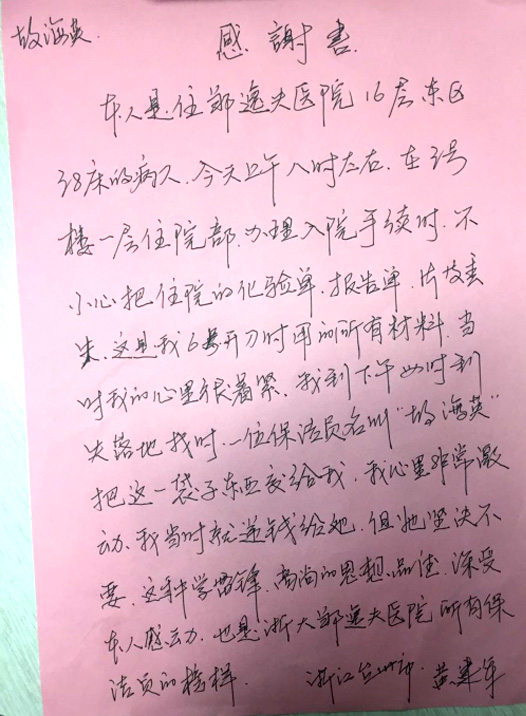 故海英
感謝書
本人是住邵逸夫医院16层东区
38床的病人、今天上午八时左右、在3号
楼一层住院部、办理入院手续时、不
小心把住院的化验单、报告单、片丢
失、这是我6号开刀时用的所有材料、当
时我的心里很着紧、我到下午四时到
失落地找时、一位保洁员名叫"故海英"
把这一袋子东西交给我、我心里非常激
动、我当时就递钱给她、但她坚决不
要、这种学雷锋、高尚的思想、品德、深受
本人感动、也是浙大邵逸夫医院所有保
洁员的榜样. 浙江台州市. 黄建军